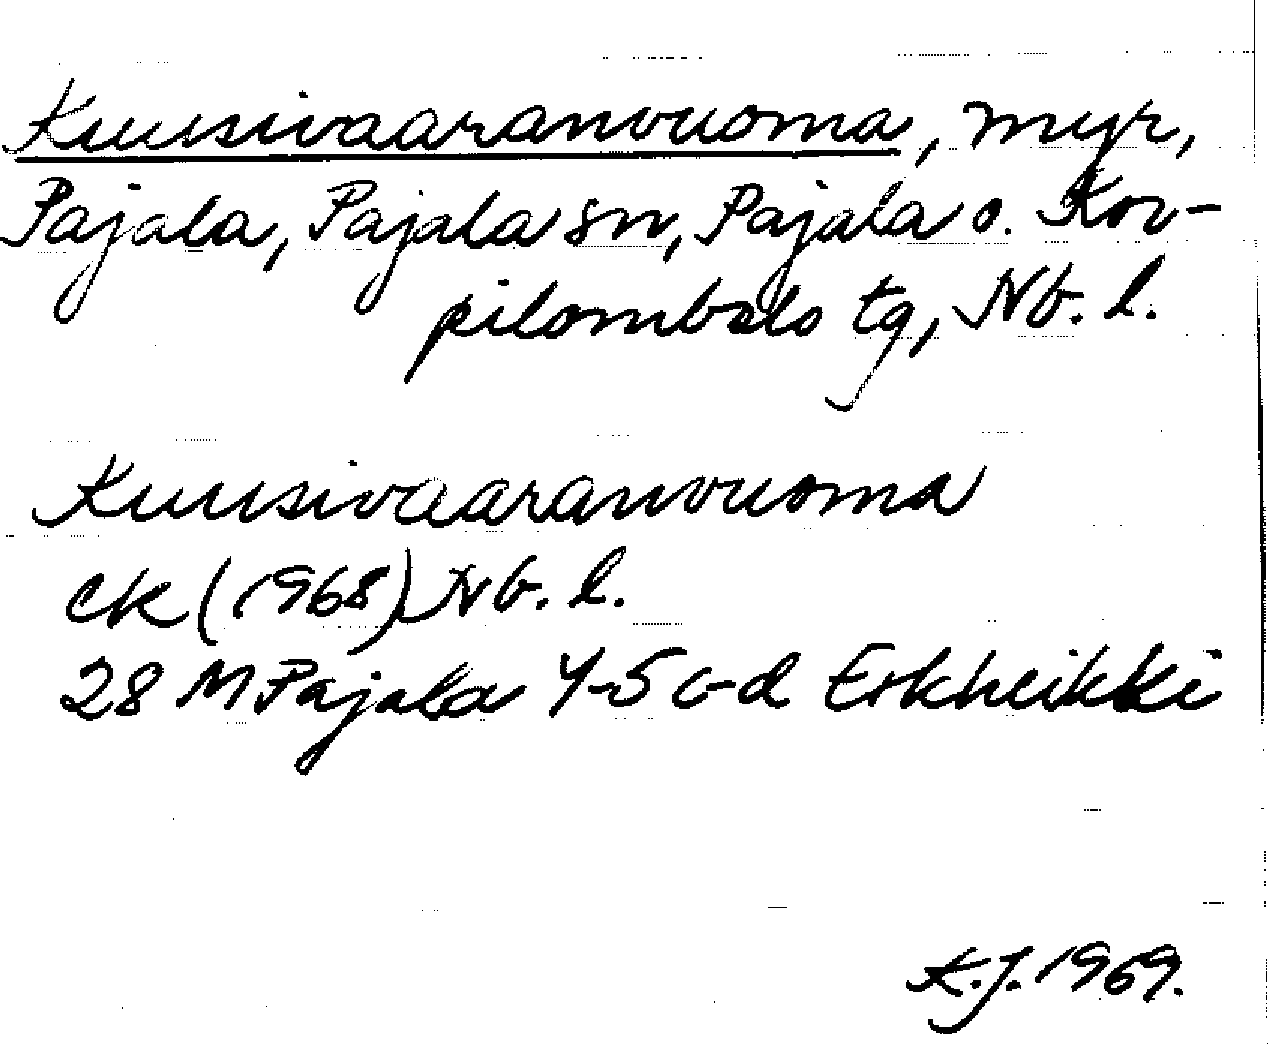 Kuusivaaranvuoma, myr,
Pajala, Pajala sn, Pajala o. Kor-
pilombolo tg, Nb. l.
Kuusivaaranvuoma
ek (1968) Nb. l.
28 M Pajala 4-5 c-d Erkheikki
K.J. 1969.